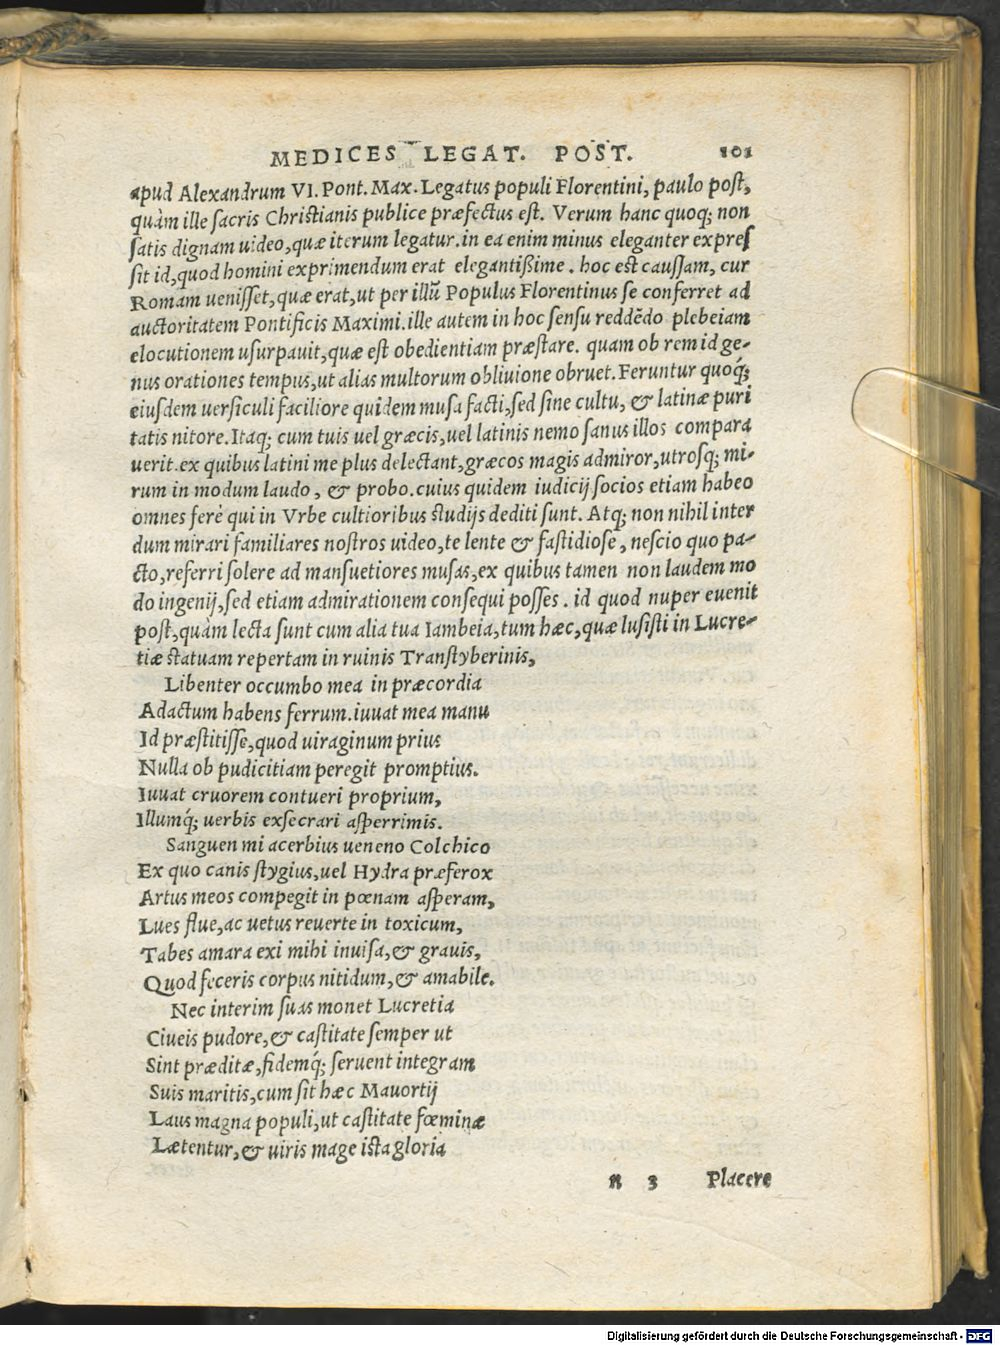 MEDICES LEGAT. POST. 101
apud Alexandrum VI. Pont. Max. Legatus populi Florentini, paulo post,
quàm ille sacris Christianis publice præfectus est. Verum hanc quoq; non
satis dignam uideo, quæ iterum legatur. in ea enim minus eleganter expres
sit id, quod homini exprimendum erat elegantißime. hoc est caussam, cur
Romam uenisset, quæ erat, ut per illũ Populus Florentinus se conferret ad
auctoritatem Pontificis Maximi. ille autem in hoc sensu reddẽdo plebeiam
elocutionem usurpauit, quæ est obedientiam præstare. quam ob rem id ge-
nus orationes tempus, ut alias multorum obliuione obruet. Feruntur quoq́;
eiusdem uersiculi faciliore quidem musa facti, sed sine cultu, & latinæ puri
tatis nitore. Itaq; cum tuis uel græcis, uel latinis nemo sanus illos compara
uerit. ex quibus latini me plus delectant, græcos magis admiror, utrosq; mi-
rum in modum laudo, & probo. cuius quidem iudicij socios etiam habeo
omnes ferè qui in Vrbe cultioribus studijs dediti sunt. Atq; non nihil inter
dum mirari familiares nostros uideo, te lente & fastidiose, nescio quo pa-
cto, referri solere ad mansuetiores musas, ex quibus tamen non laudem mo
do ingenij, sed etiam admirationem consequi posses. id quod nuper euenit
post, quàm lecta sunt cum alia tua Iambeia, tum hæc, quæ lusisti in Lucre-
tiæ statuam repertam in ruinis Transtyberinis,
Libenter occumbo mea in præcordia
Adactum habens ferrum. iuuat mea manu
Id præstitisse, quod uiraginum prius
Nulla ob pudicitiam peregit promptius.
Iuuat cruorem contueri proprium,
Illumq́; uerbis exsecrari asperrimis.
Sanguen mi acerbius ueneno Colchico
Ex quo canis stygius, uel Hydra præferox
Artus meos compegit in pœnam asperam,
Lues flue, ac uetus reuerte in toxicum,
Tabes amara exi mihi inuisa, & grauis,
Quod feceris corpus nitidum, & amabile.
Nec interim suas monet Lucretia
Ciueis pudore, & castitate semper ut
Sint præditæ, fidemq́; seruent integram
Suis maritis, cum sit hæc Mauortij
Laus magna populi, ut castitate fœminæ
Lætentur, & uiris mage ista gloria
n 3 Placere
Digitalisierung gefördert durch die Deutsche Forschungsgemeinschaft - DFG